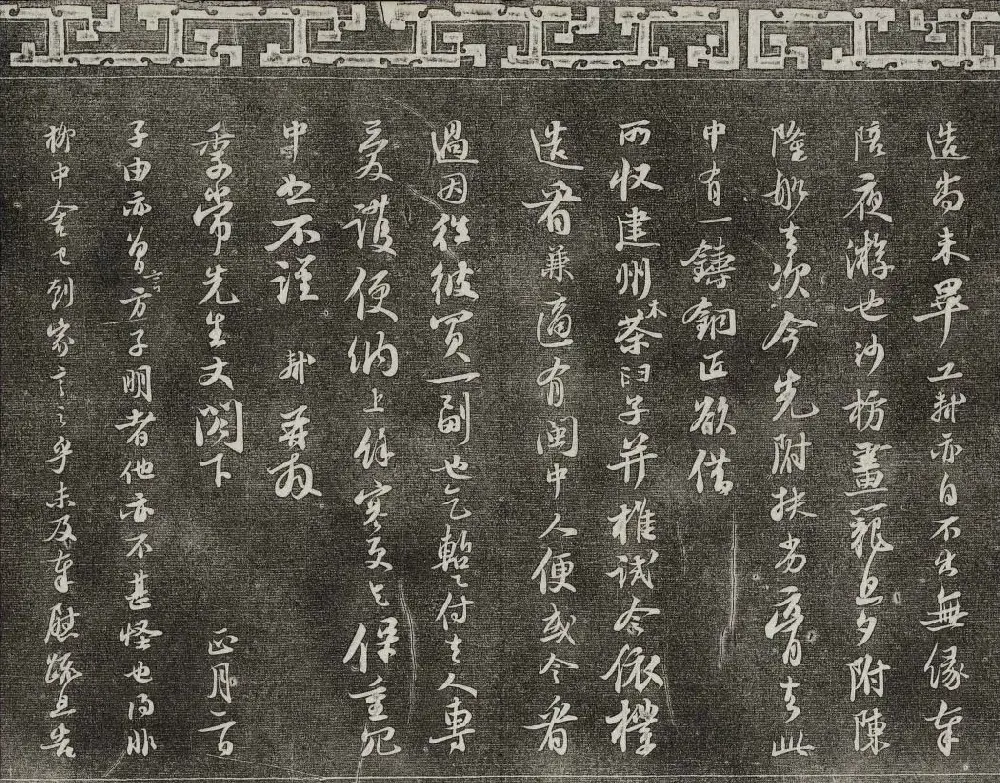 造尚未畢工軾亦自不出無緣奉
陪夜游也沙枋畫籠旦夕附陳
隆船去次今先附扶劣膏去此
中有一鑄銅匠欲借
所收建州木茶臼子并椎試令依樣
造看兼適有閩中人便或令看
過因往彼買一副也乞暫付去人專
愛護便納上餘寒更乞保重冗
中恕不謹 軾再拜
季常先生丈閣下
正月二日
子由亦曾言方子明者他亦不甚怪也得非
柳中舍已到家言之乎未及奉慰疏且告